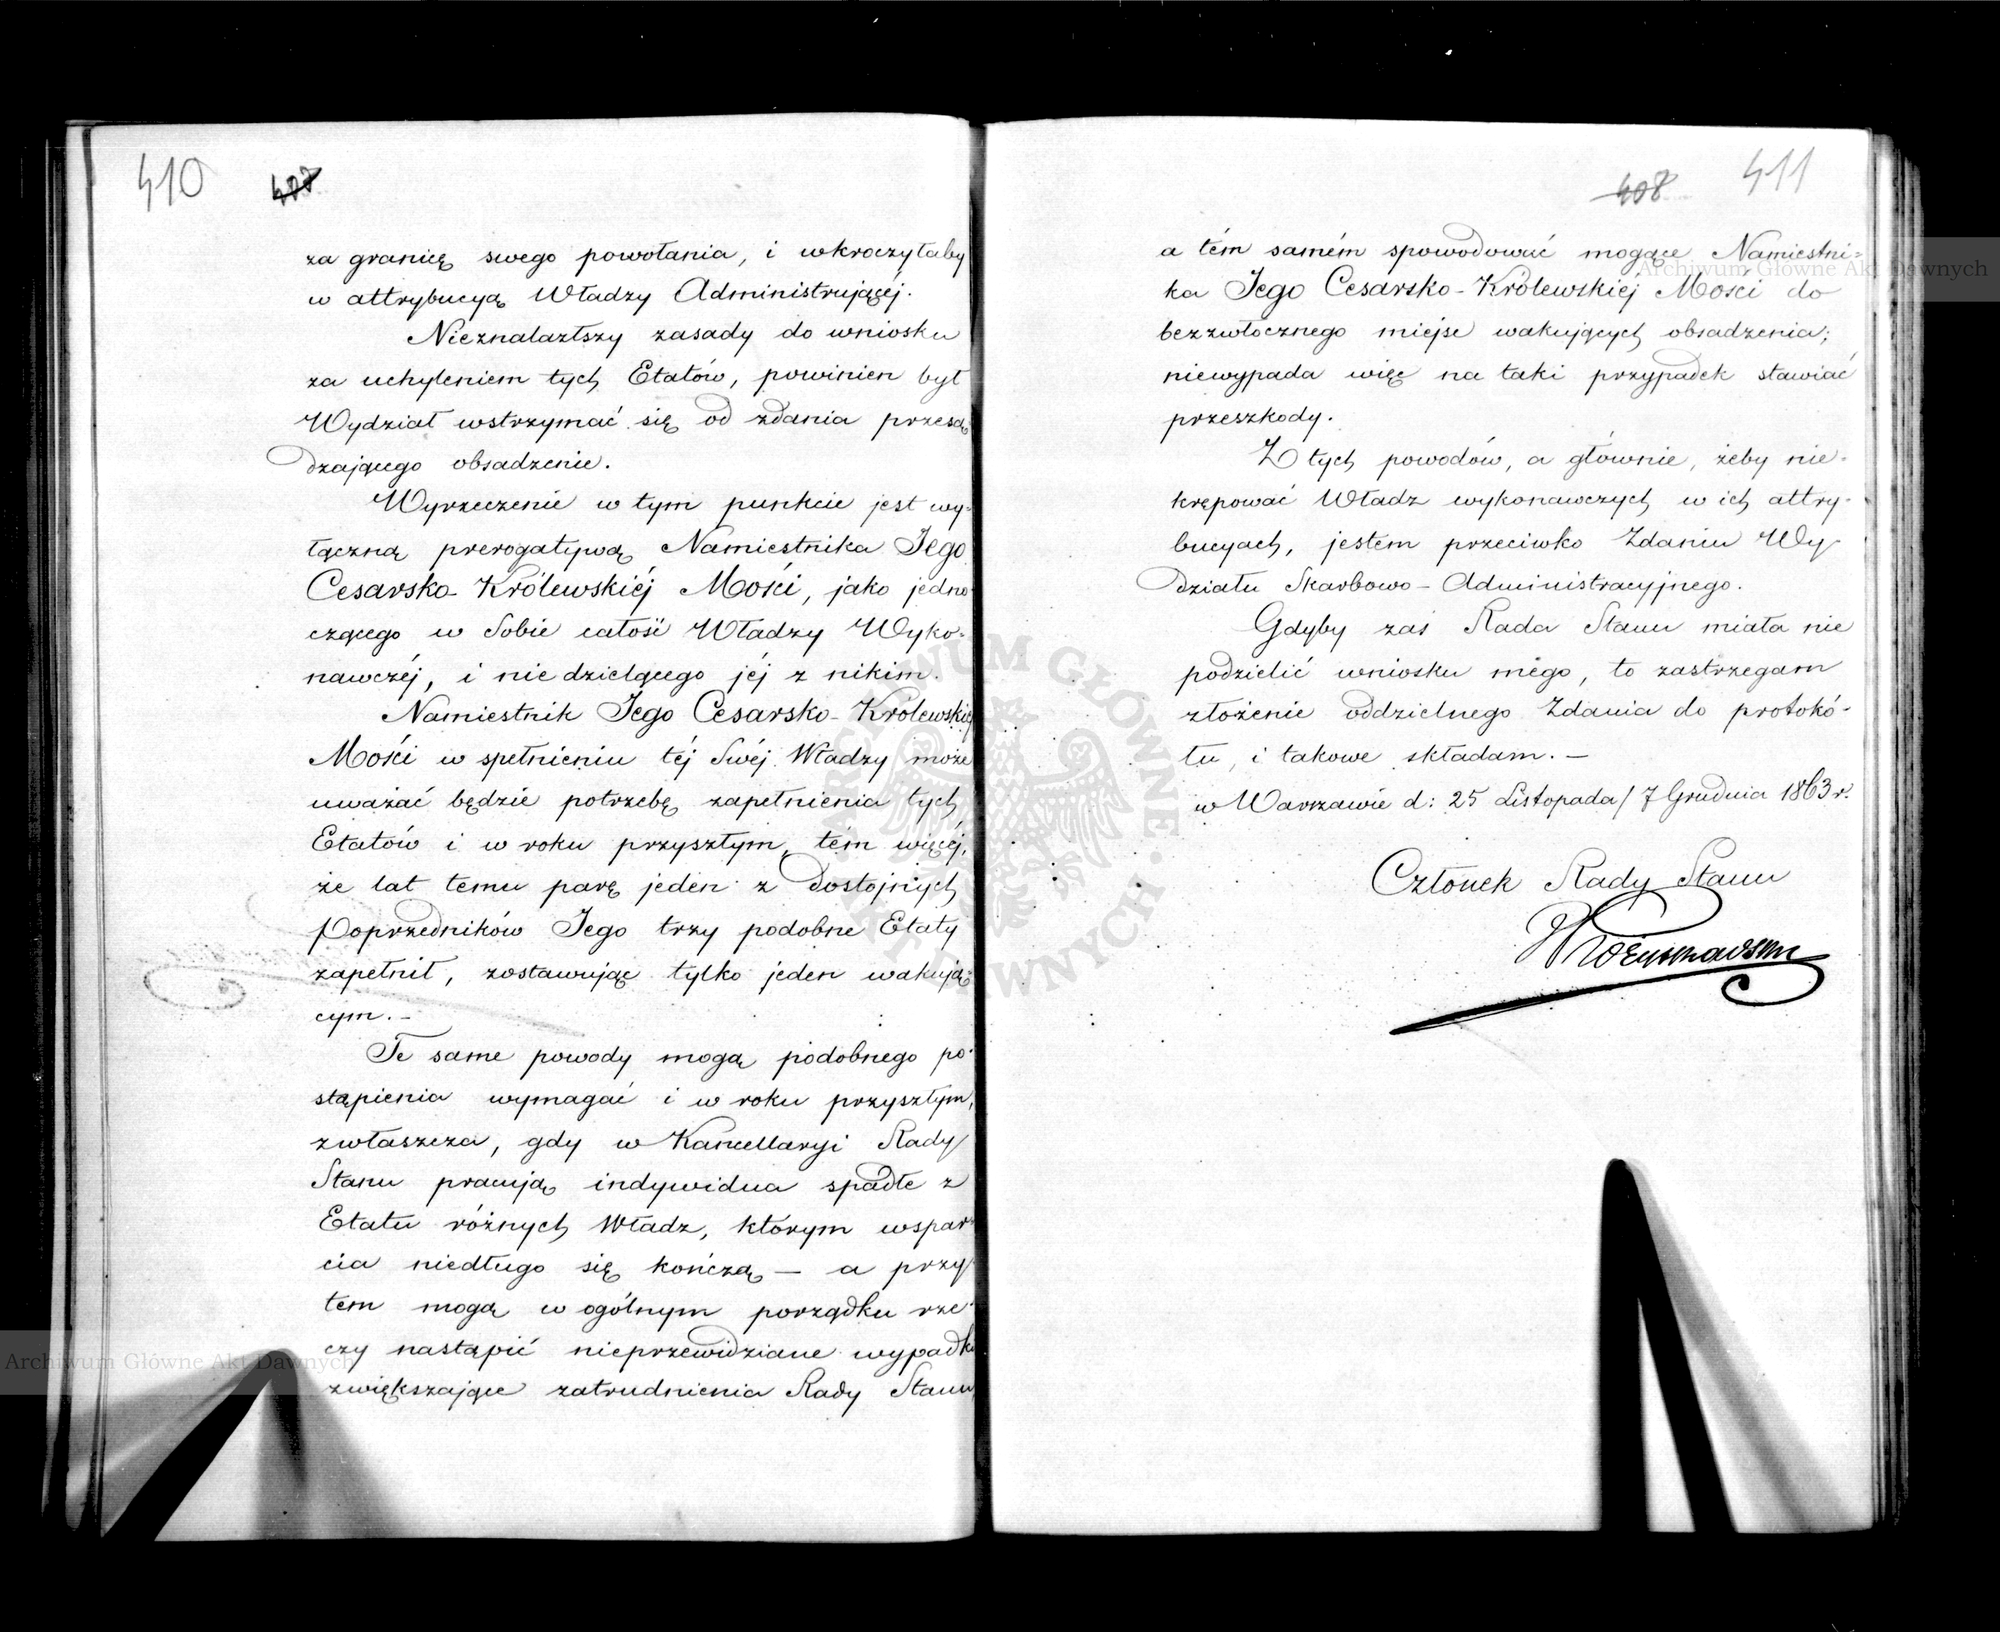 410
407
za granicę swego powołania, i wkroczyłaby
w attrybucyą Władzy Administrującéj.
Nieznalazłszy zasady do wniosku
za uchyleniem tych Etatów, powinien był
Wydział wstrzymać się od zdania przesą-
dzającego obsadzenie.
Wyrzeczenie w tym punkcie jest wy-
łączną prerogatywą Namiestnika Jego
Cesarsko-Królewskiéj Mości, jako jedno-
czącego w Sobie całość Władzy Wyko-
nawczéj, i nie dzielącego jéj z nikim.
Namiestnik Jego Cesarsko-Królewskiéj
Mości w spełnieniu téj Swéj Władzy może
uważać będzie potrzebę zapełnienia tych
Etatów i w roku przyszłym, tém więcéj,
że lat temu parę jeden z dostojnych
Poprzedników Jego trzy podobne Etaty
zapełnił, zostawując tylko jeden wakują-
cym. –
Te same powody mogą podobnego po-
stąpienia wymagać i w roku przyszłym,
zwłaszcza, gdy w Kancellaryi Rady
Stanu pracują indywidua spadłe z
Etatu różnych Władz, którym wspar-
cia niedługo się kończą – a przy
tem mogą w ogólnym porządku rze-
czy nastąpić nieprzewidziane wypadki
zwiększające zatrudnienia Rady Stanu,
408
411
a tém samém spowodować mogące Namiestni-
ka Jego Cesarsko-Królewskiéj Mości do
bezzwłocznego miejsc wakujących obsadzenia;
niewypada więc na taki przypadek stawiać
przeszkody.
Z tych powodów, a głównie, żeby nie-
krępować Władz wykonawczych w ich attry-
bucyach, jestem przeciwko Zdaniu Wy-
działu Skarbowo-Administracyjnego.
Gdyby zaś Rada Stanu miała nie
podzielić wniosku mégo, to zastrzegam
złożenie oddzielnego Zdania do protokó-
łu, i takowe składam. –
w Warszawie d: 25 Listopada/7 Grudnia 1863 r.
Członek Rady Stanu
Archiwum Główne Akt Dawnych
Archiwum Główne Akt Dawnych
ARCHIWUM GŁÓWNE AKT DAWNYCH